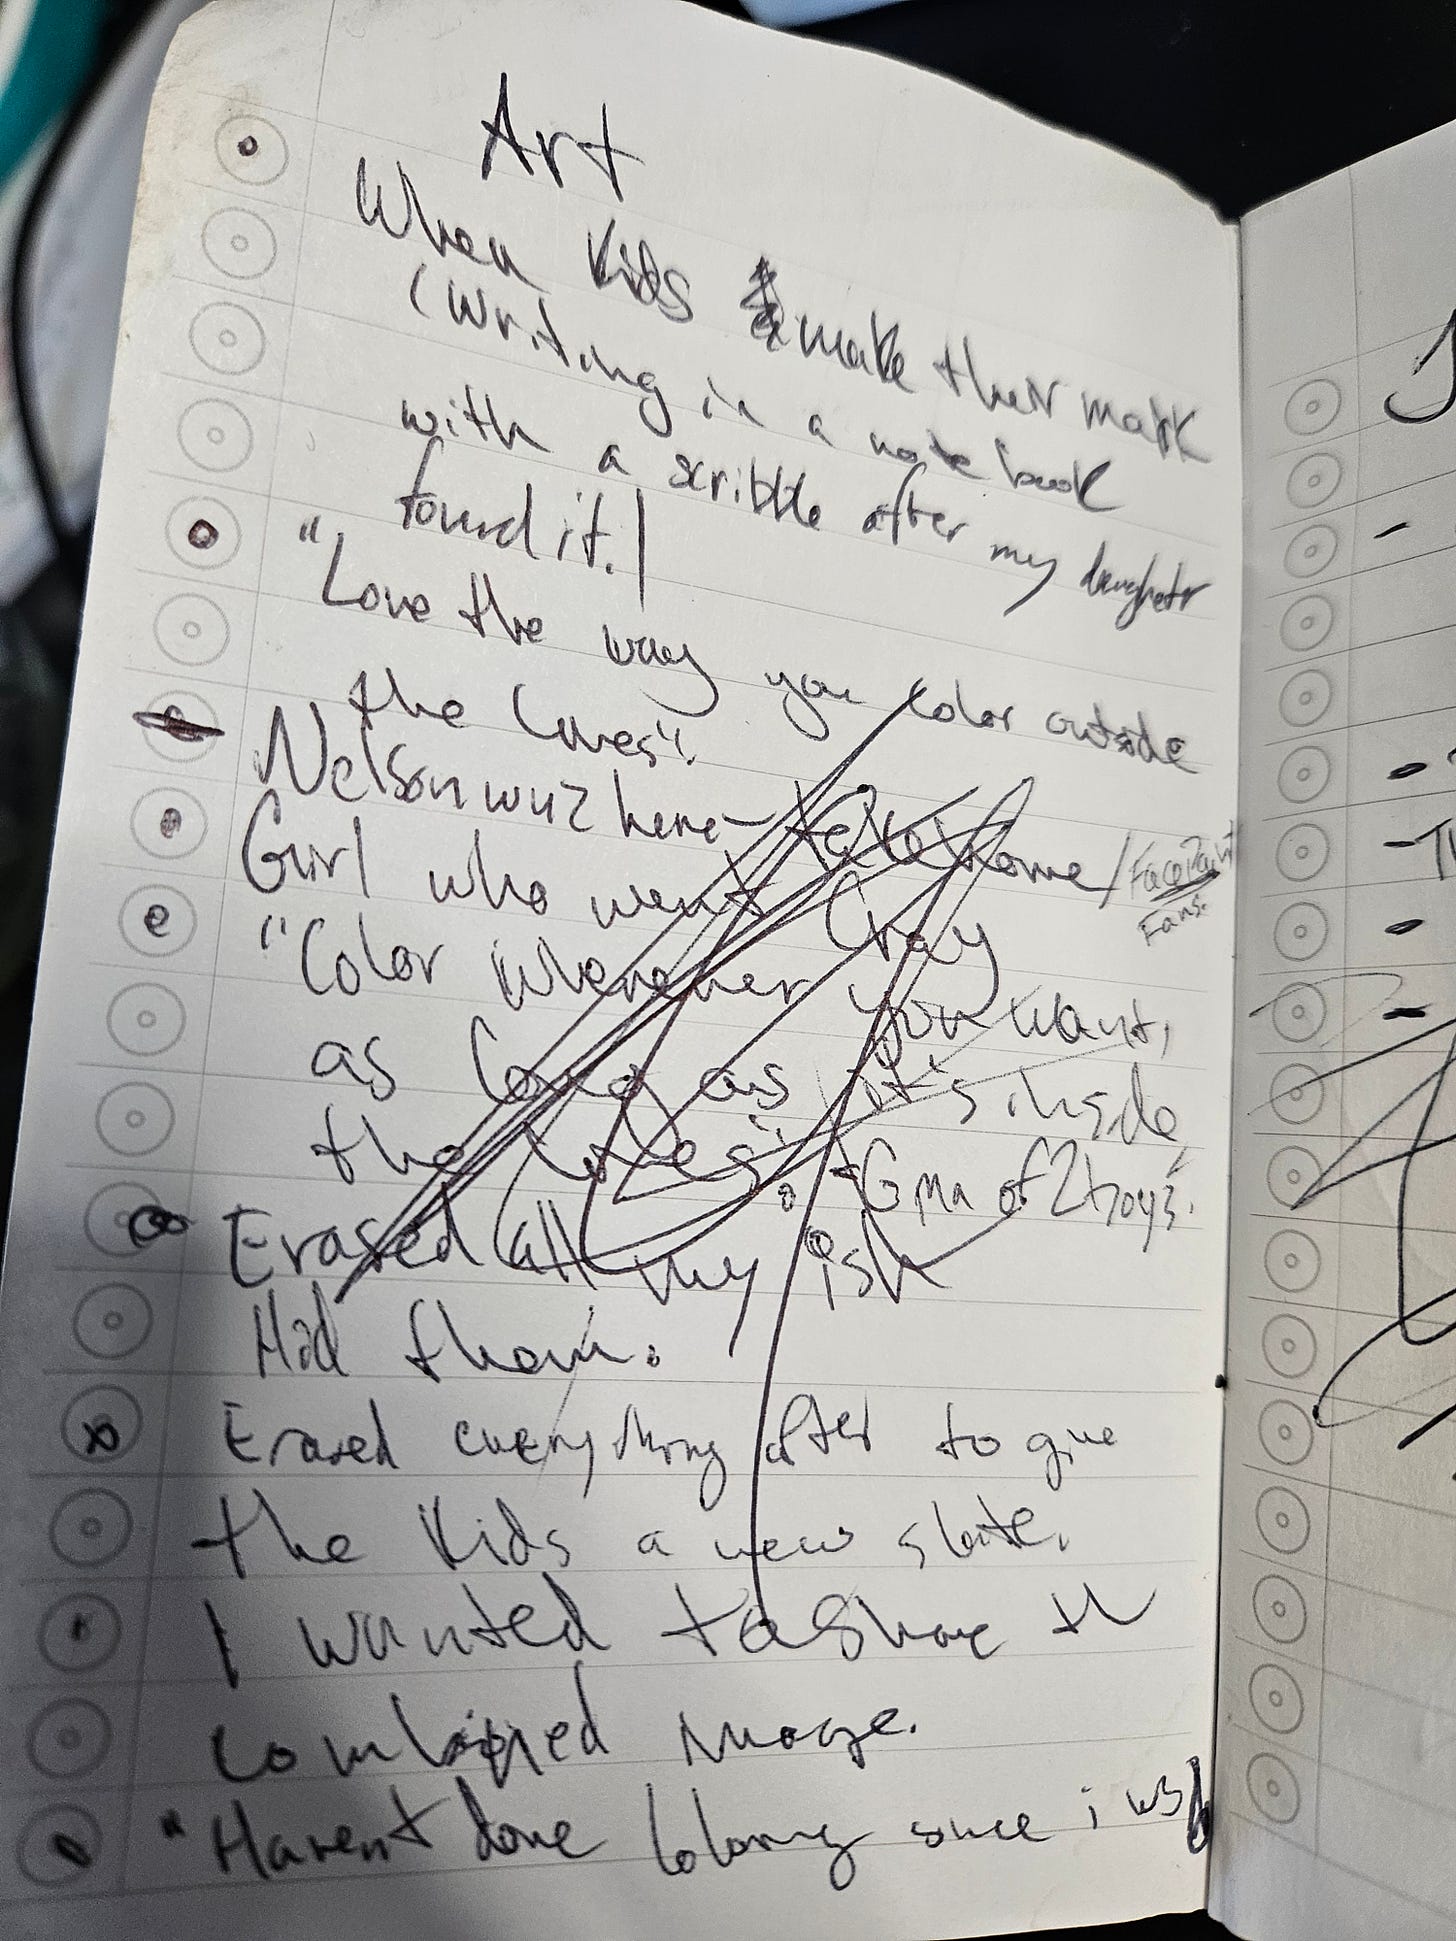 Art
When Kids make their mark
(Writing in a note book
with a scribble after my
found it.)
"Love the way you Color outside
the Lines".
Nelson wuz here - take home / Face Paint
Fans.
Girl who went Cray
"Color wherever you want,
as long as it's inside
the lines". - Gma of 2 boys.
Erased all my ish
Hid them.
Erased everything after to give
the Kids a new slate.
I wanted to share th
combined image.
"Havent done Coloring since i was